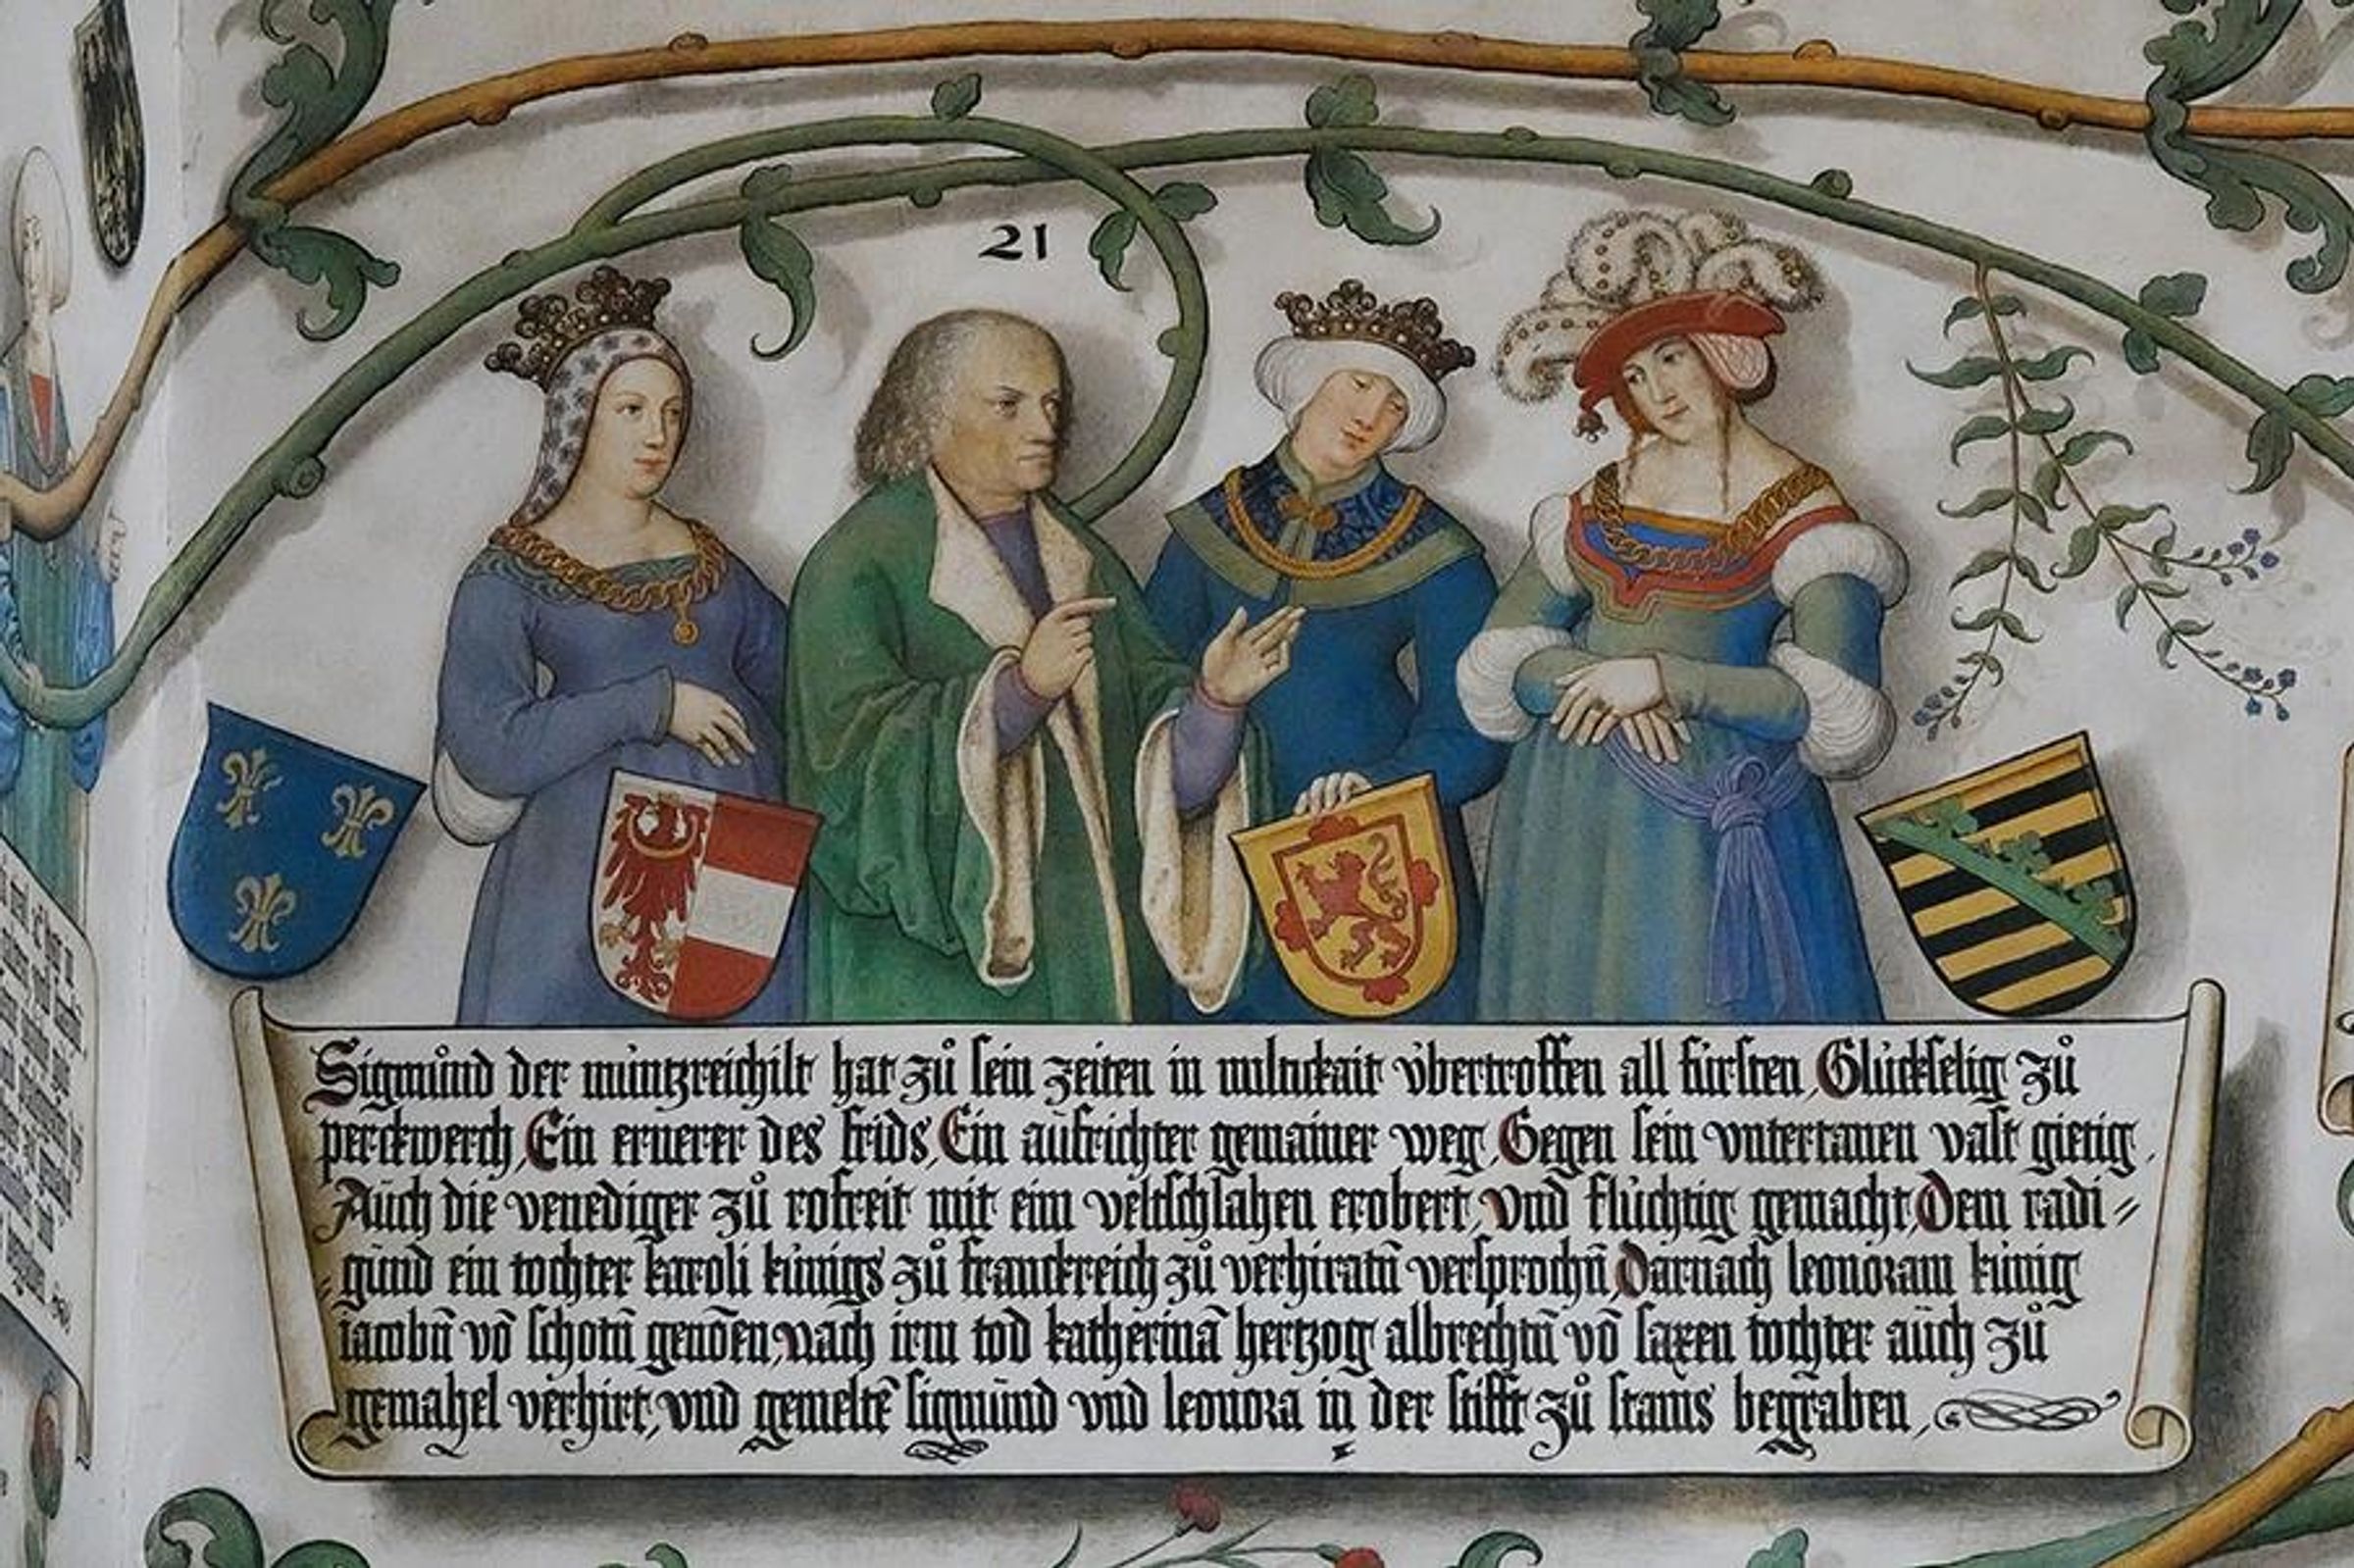 21
Sigmůnd der můntzreichist hat zů sein zeiten in miltickait vbertroffen all fürsten, Glückselig zů
perckwerch, Ein ernerer des frids, Ein aůfrichter gemainer weg, Gegen sein vntertanen vast gietig,
Aůch die venediger zů rofreit mit eim veltschlahen erobert, vnd flůchtig gemacht, Dem radi⸗
⸗gůnd ein tochter karoli künigs zů franckreich zů verhiratñ versprochñ, Darnach leonoram künig
iacobñ vō schotñ genōen, nach irm tod katherinā hertzog albrechtñ vō saxen tochter aůch zů
gemahel verhirt, vnd gemelte sigmůnd vnd leonora in der stifft zů stams begraben,